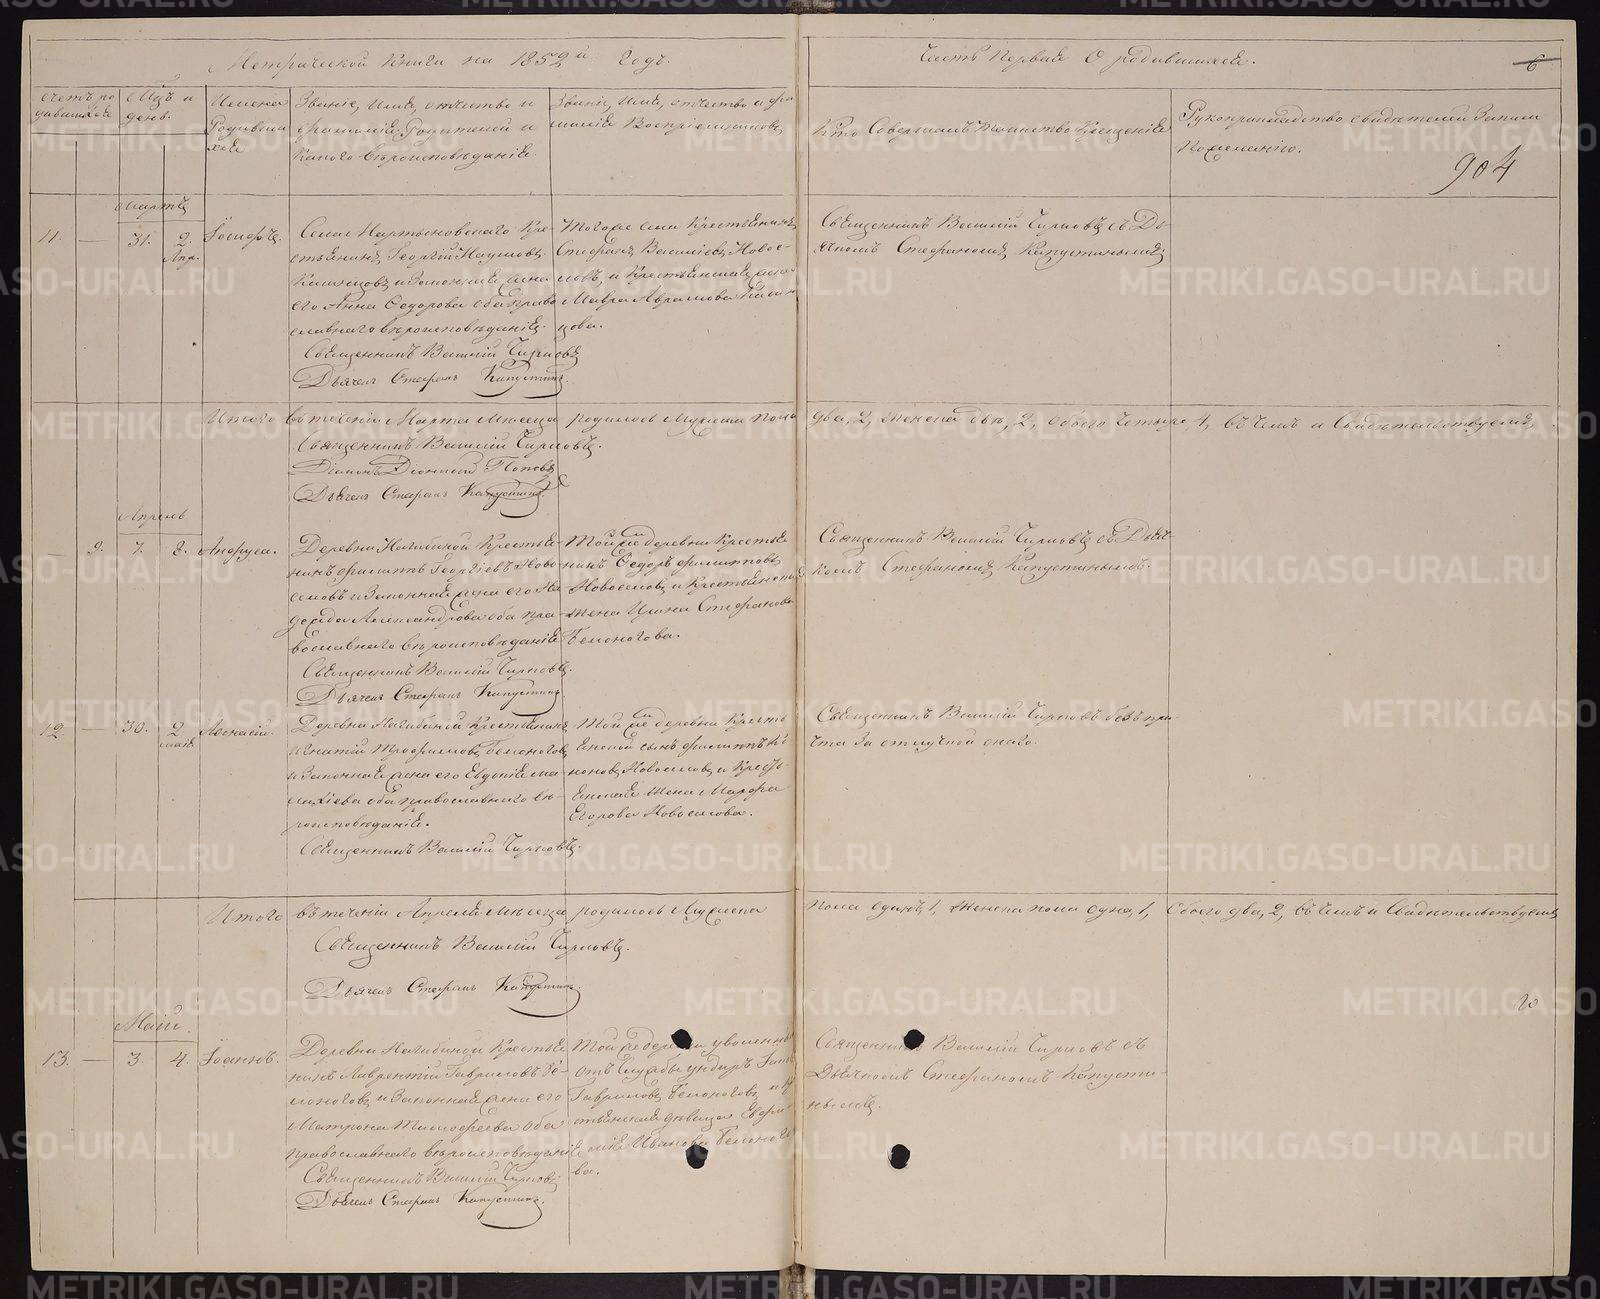 Метрической Книги на 1852й Годъ.
Часть Первая О родившихся.
6
Счетъ родившихся
Мѣсяцъ и день.
Имена Родившихся.
Званіе, имя, отчество и фамилія Родителей и какого вѣроисповѣданія.
Званіе, имя, отчество и фамилія Воспріемниковъ.
Кто Совершалъ Таинство Крещенія
Рукоприкладство свидѣтелей Записи по желанію.
904
Мартъ
11. — 31. 2. Апр. Іосифъ.
Села Мартыновскаго Кре-
стьянинъ Георгій Наумовъ
и Законная жена
его Анна Ѳедорова оба право-
славнаго вѣроисповѣданія.
Священникъ Василій Чирковъ
Дьячекъ Стефанъ Капустинъ.
Тогоже села Крестьянинъ
Стефанъ Васильевъ Новос-
ловъ и Крестьянская жена
Мавра Аврамова
цова.
Священникъ Василій Чирковъ съ Дь-
ячкомъ Стефаномъ Капустинымъ
Итого въ теченіи Марта мѣсяца родилось Мужеска пола два, 2, женска двѣ, 2, обоего четыре 4, въ чемъ и Свидѣтельствуемъ
Священникъ Василій Чирковъ.
Діаконъ Діонисій Поповъ
Дьячекъ Стефанъ Капустинъ.
Апрель
9. 7. 8. Анфуса.
Деревни Нагибиной Крестья-
нинъ Филиппъ Георгіевъ Ново-
селовъ и Законная жена его На-
дежда Александрова оба пра-
вославнаго вѣроисповѣданія
Священникъ Василій Чирковъ.
Дьячекъ Стефанъ Капустинъ
Той же деревни Крестья-
нинъ Ѳедоръ Филиповъ
Новоселовъ и Крестьянская
жена Ирина Стефанова
Белоногова.
Священникъ Василій Чирковъ съ Дьяч-
комъ Стефаномъ Капустинымъ.
12 — 30. 2 мая. Аѳанасій.
Деревни Нагибиной Крестьянинъ
Игнатій Трофимовъ Белоноговъ
и Законная жена его Евдокія Ма-
лахіева оба православнаго вѣ-
роисповѣданія.
Священникъ Василій Чирковъ.
Той же деревни Кресть-
янской сынъ Филиппъ
Новоселовъ и Кресть-
янская жена Марфа
Егорова Новоселова.
Священникъ Василій Чирковъ безъ при-
чта за отлучкой онаго.
Итого въ теченіи Апреля мѣсяца родилось Мужеска пола одинъ 1, женска пола одна 1, обоего два, 2, въ чемъ и Свидѣтельствуемъ
Священникъ Василій Чирковъ.
Дьячекъ Стефанъ Капустинъ.
Май.
13. — 3. 4. Іоаннъ.
Деревни Нагибиной Крестья-
нинъ Лаврентій Гавриловъ Бе-
лоноговъ и Законная жена его
Матрона Тимофеева оба
православнаго вѣроисповѣданія
Священникъ Василій Чирковъ
Дьячекъ Стефанъ Капустинъ.
Той же деревни уволенный
отъ Службы ундеръ
Гавриловъ Белоноговъ и Кре-
стьянская дѣвица Евфи-
мія Иванова Белоного-
ва.
Священникъ Василій Чирковъ съ
Дьячкомъ Стефаномъ Капусти-
нымъ.
METRIKI.GASO-URAL.RU